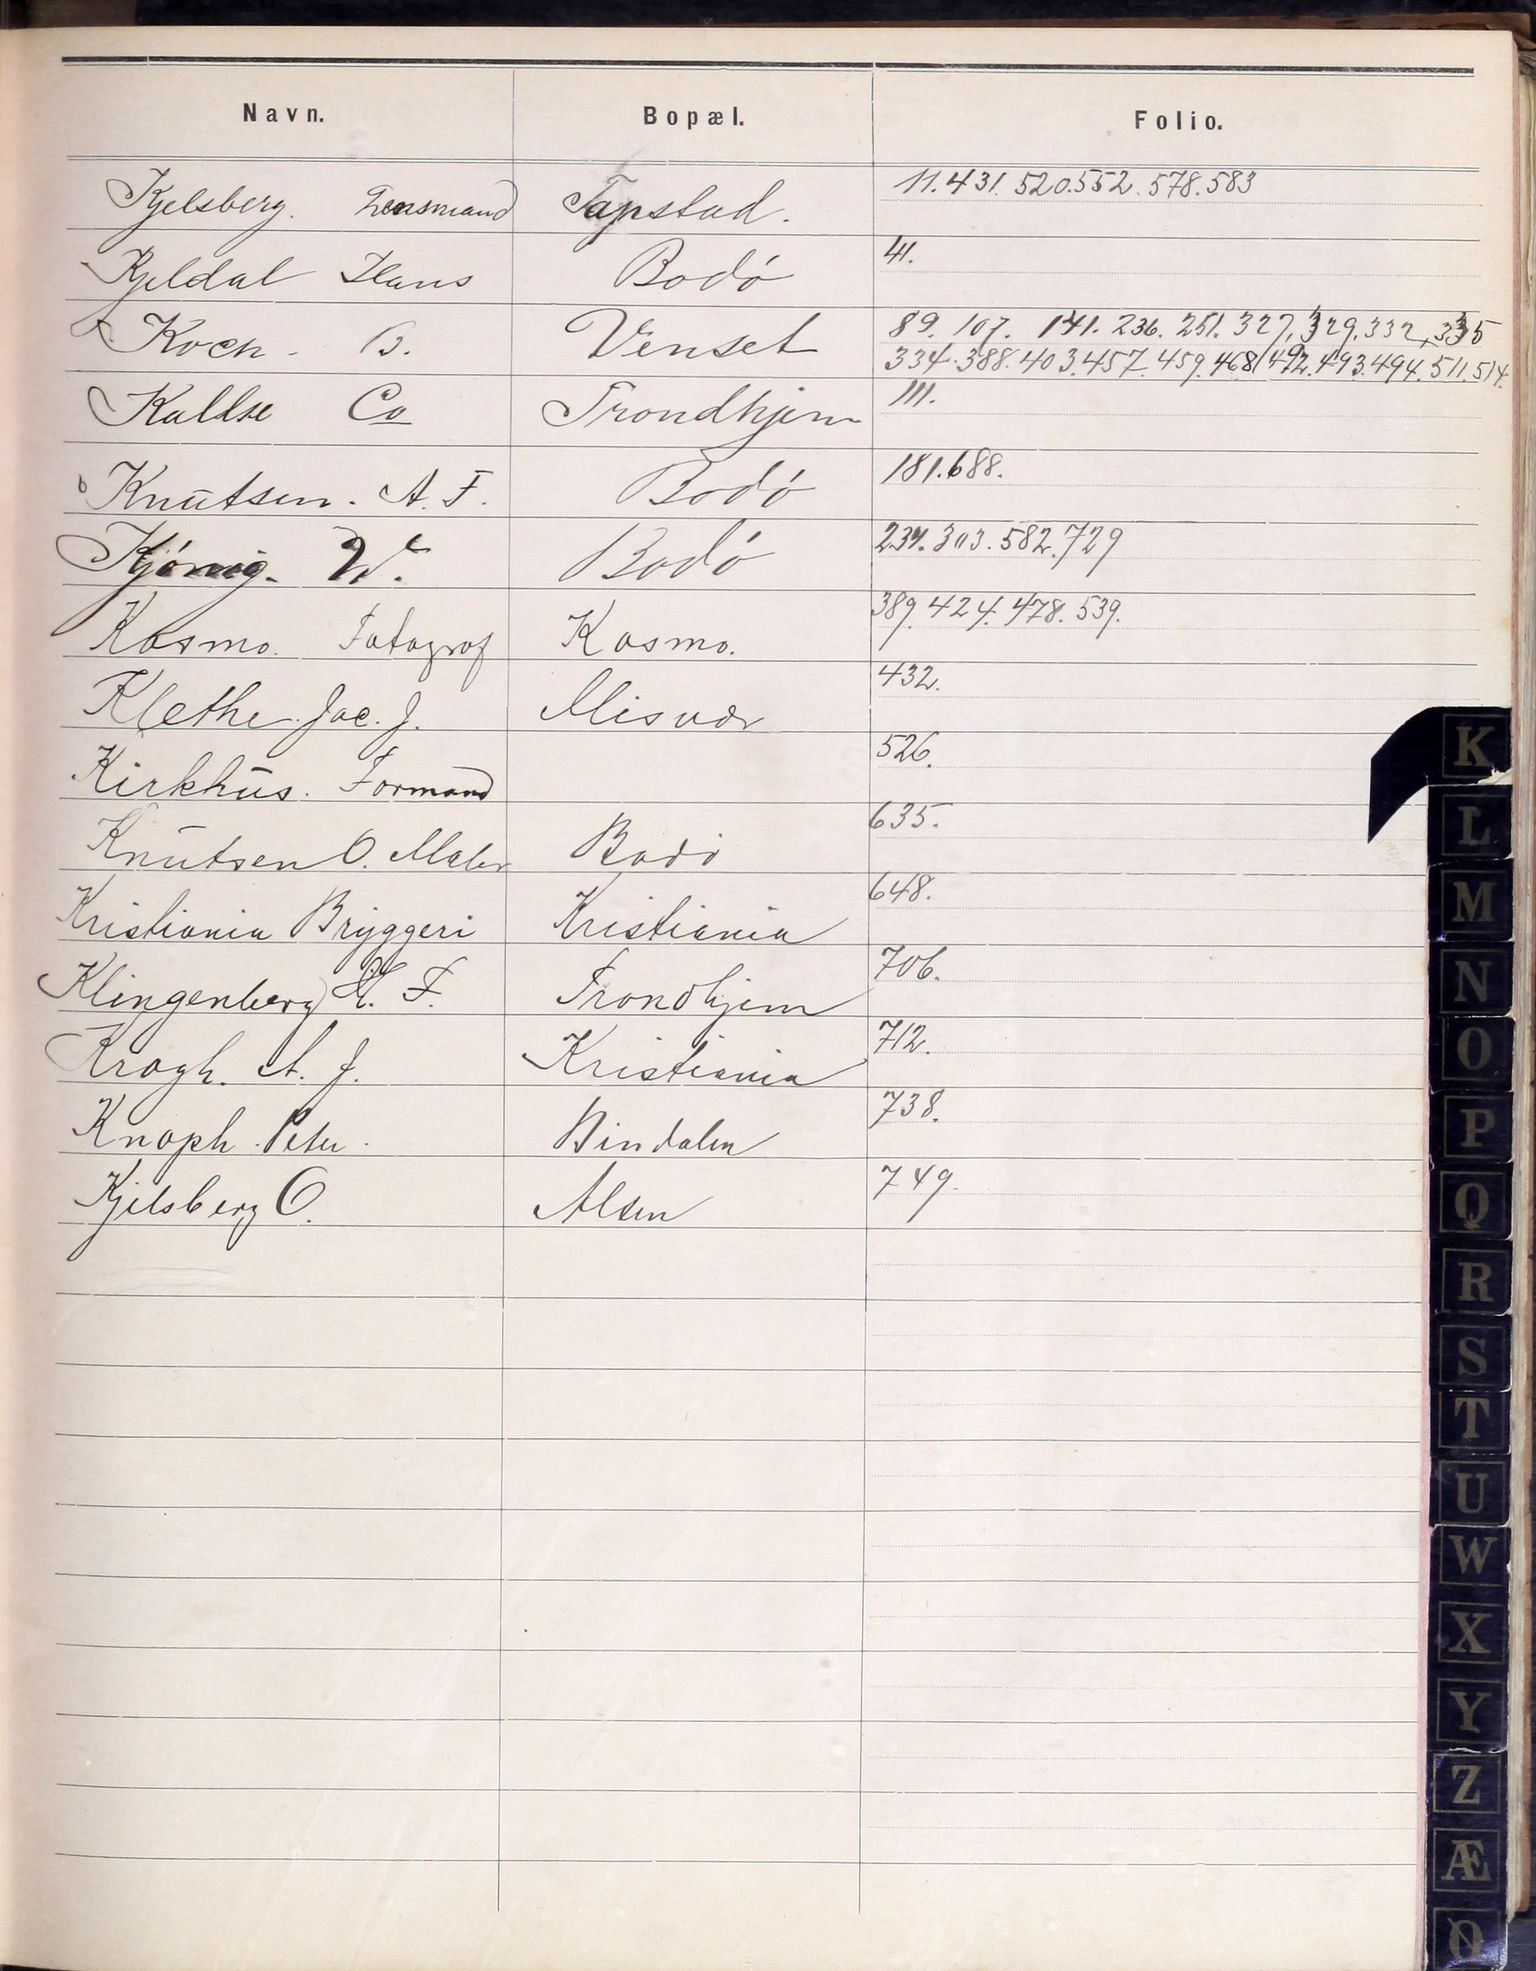 Navn. Bopæl. Folio.
Kjelsberg. Lensmand Tapstad. 11. 431. 520. 552. 578. 583
Kjeldal Hans Bodó 41.
Koch. B. Venset 89. 107. 141. 236. 251. 327, 329, 332, 335
334. 388. 403. 457. 459. 468 492. 493. 494. 511. 514.
Kallse Co Trondhjem 111.
Knutsen. A. F. Bodó 181. 688.
Kjónig. W. Bodó 234. 303. 582. 729
Kosmo. Fotograf Kosmo. 389. 424. 478. 539.
Klethe. Jac. J. Misvær 432.
Kirkhus. Formand 526.
Knutsen O. Maler Bodó 635.
Kristiania Bryggeri Kristiania 648.
Klingenberg H. F. Trondhjem 706.
Krogh. A. J. Kristiania 712.
Knoph. Peter. Bindalen 738.
Kjelsberg O. Alsen 749.
K
L
M
N
O
P
Q
R
S
T
U
W
X
Y
Z
Æ
Ø